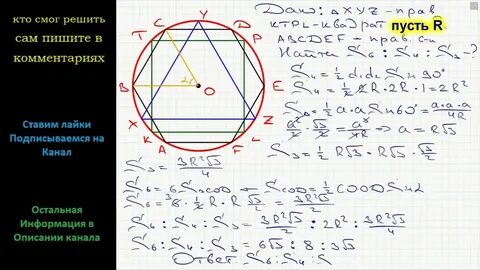 кто смог решить
сам пишите в
комментариях
Ставим лайки
Подписываемся на
Канал
Остальная
Информация в
Описании канала
Y
C D
T P
B O E
X Z
K L
A F
Дано: △XYZ - прав
KTPL - квадрат пусть R
ABCDEF - прав.
Найти S₆ : S₄ : S₃ - ?
S₄ = ½ d₁d₂ Sin 90°
S₄ = ½ 2R · 2R · 1 = 2R²
S₃ = ½ a·a Sin 60° = a·a·a / 4R
a²/2 √3/2 = a³/4R ⇒ a = R√3
S₃ = ½ R√3 · R√3 · √3/2
S₃ = 3R²√3 / 4
S₆ = 6 S COD ⇐ S COD = ½ CO·OD Sin α
S₆ = 6 · ½ · R · R √3/2 = 3R²√3 / 2
S₆ : S₄ : S₃ = 3R²√3/2 : 2R² : 3R²√3/4
S₆ : S₄ : S₃ = 6√3 : 8 : 3√3
Ответ S₆ : S₄ : S